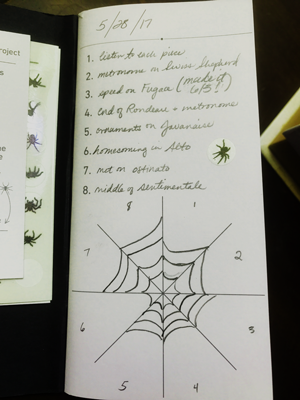 roject
s
5/28/17
1. listen to each piece
2. metronome on Swiss Shepherd
3. speed on Fugace (made it
6/3!)
4. end of Rondeau + metronome
5. ornaments on Javanaise
6. homecoming in Alto
7. met on ostinato
8. middle of Sentimentale
8 1
7 2
6 3
5 4